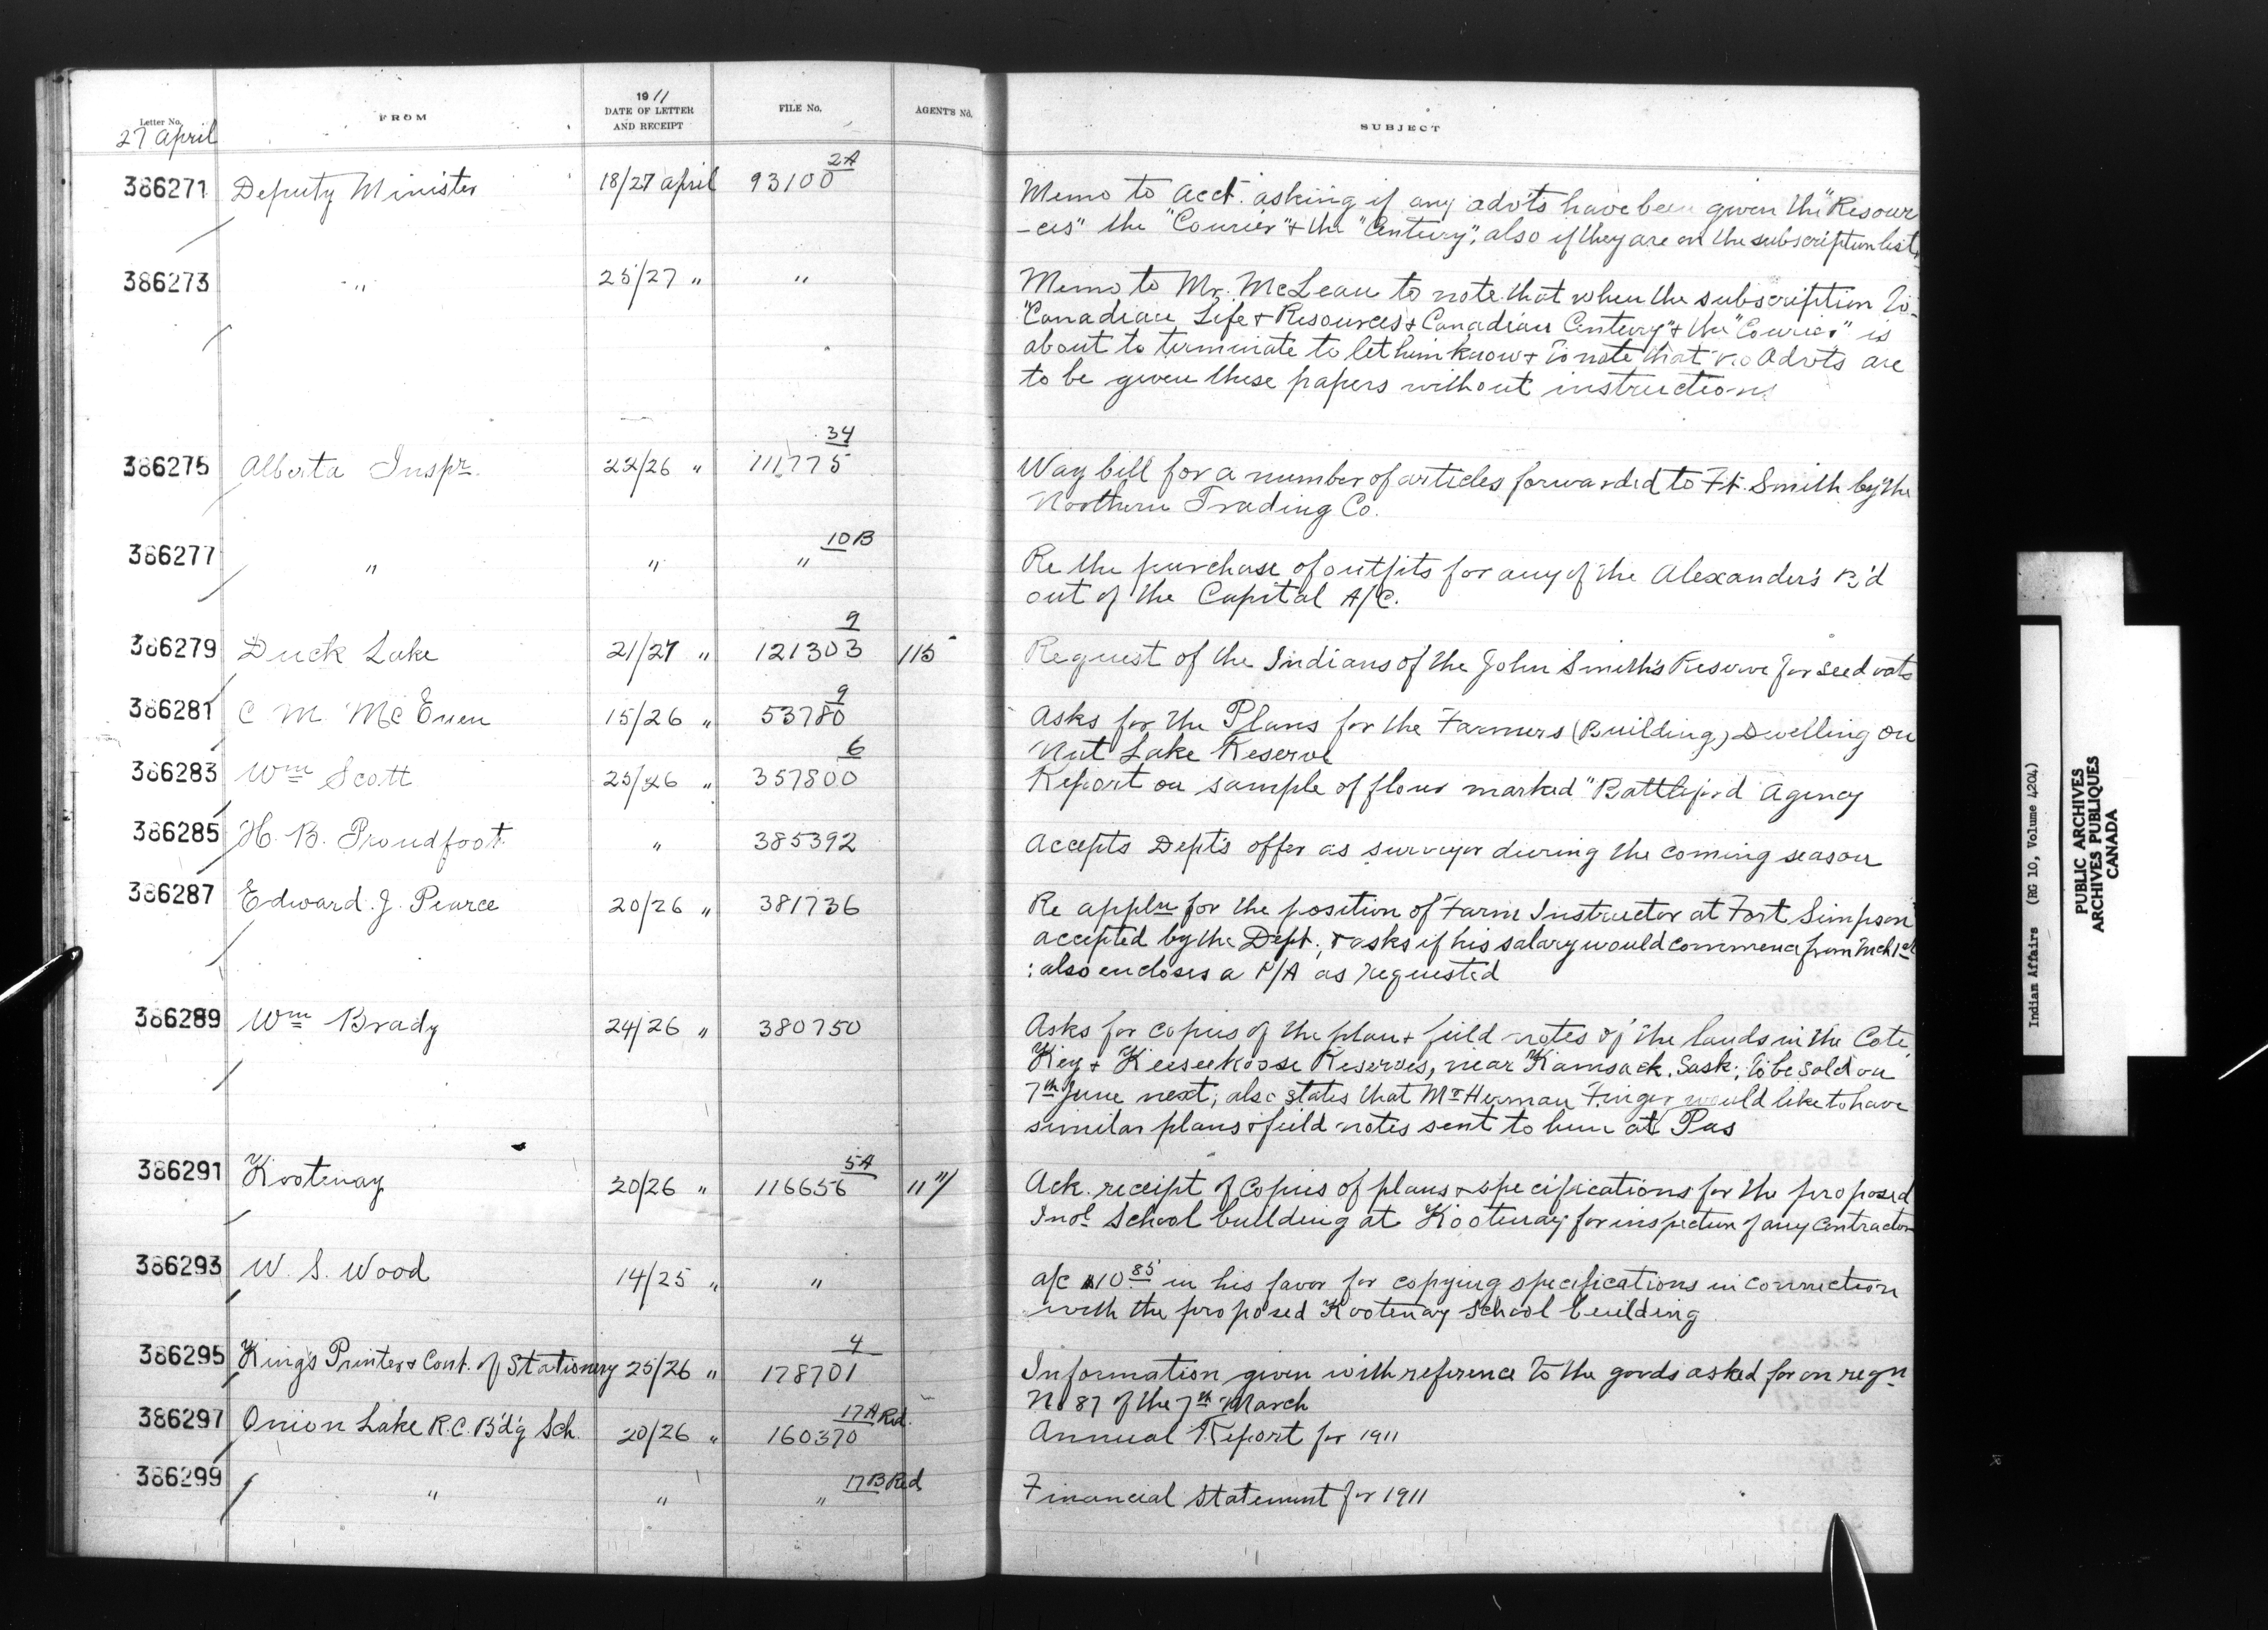 Letter No.
27 April
FROM
1911
DATE OF LETTER
AND RECEIPT
FILE No.
AGENT'S No.
SUBJECT
386271 Deputy Minister 18/27 April 93100 2A Memo to Acct. asking if any advts have been given the "Resour
-ces" the "Courier" & the "Century", also if they are on the subscription list.
386273 " 25/27 " " Memo to Mr. McLean to note that when the subscription to
"Canadian Life & Resources & Canadian Century" & the "Courier" is
about to terminate to let him know & to note that no Advts are
to be given these papers without instructions
386275 Alberta Inspr. 22/26 " 111775 34 Way bill for a number of articles forwarded to Ft. Smith by the
Northern Trading Co.
386277 " " " 10B Re the purchase of outfits for any of the Alexander's B'd
out of the Capital A/C.
386279 Duck Lake 21/27 " 121303 9 115 Request of the Indians of the John Smith's Reserve for seed oats
386281 C M McEuen 15/26 " 53780 9 Asks for the Plans for the Farmers (Building) Dwelling on
Nut Lake Reserve
386283 Wm Scott 25/26 " 357800 6 Report on sample of flour marked "Battleford Agency
386285 H. B. Proudfoot " 385392 Accepts Dept's offer as surveyor during the coming season
386287 Edward. J. Pearce 20/26 " 381736 Re appln for the position of Farm Instructor at Fort Simpson
accepted by the Dept.; & asks if his salary would commence from Mch 1st
: also encloses a P/A as requested
386289 Wm Brady 24/26 " 380750 Asks for copies of the plan & field notes of the lands in the Cote,
Key & Keeseekoose Reserves, near Kamsack. Sask; to be sold on
7th June next; also states that Mr Herman Finger would like to have
similar plans & field notes sent to him at Pas
386291 Kootenay 20/26 " 116656 5A Ack. receipt of copies of plans & specifications for the proposed
Indl School building at Kootenay for inspection of any contractors
386293 W. S. Wood 14/25 " " a/c $10 85 in his favor for copying specifications in connection
with the proposed Kootenay School building
386295 King's Printer & Cont. of Stationery 25/26 " 178701 4 Information given with reference to the goods asked for on reqn
No 87 of the 7th March
386297 Onion Lake R.C. B'd'g Sch. 20/26 " 160370 17A Red. Annual Report for 1911
386299 " " " 17B Red Financial Statement for 1911
Indian Affairs (RG 10, Volume 4204)
PUBLIC ARCHIVES
ARCHIVES PUBLIQUES
CANADA